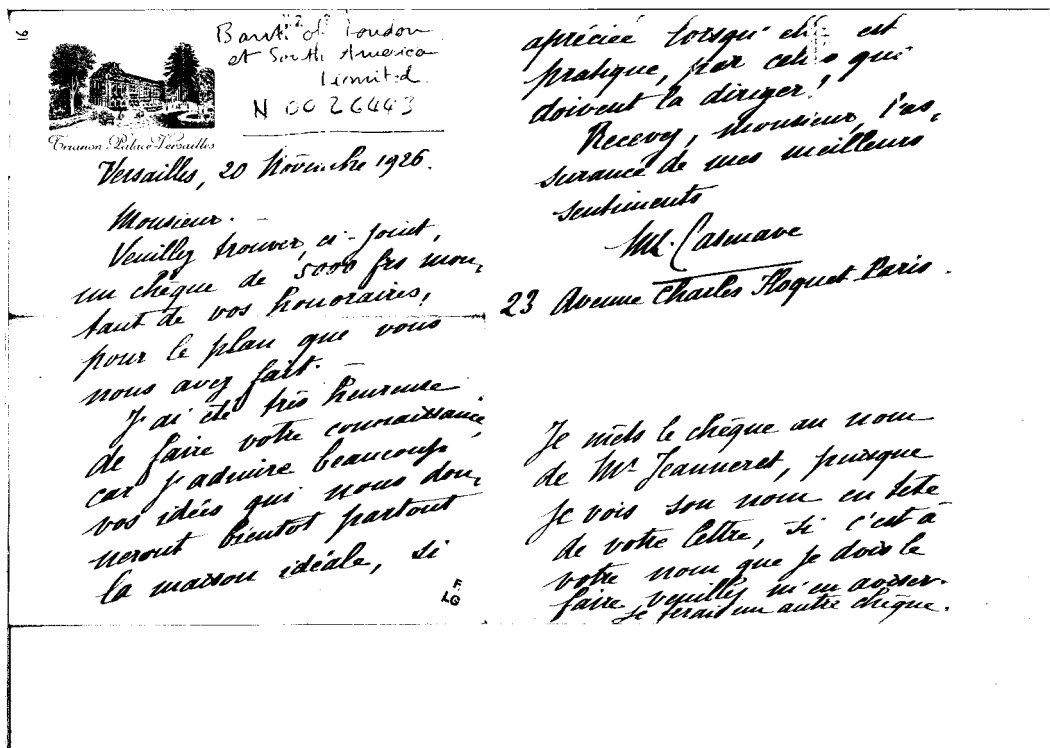 Bank of London
et South America
Limited
N 0026443
Trianon Palace Versailles
Versailles, 20 Novembre 1926.
Monsieur.
Veuillez trouver, ci-joint,
un chèque de 5000 frs mon,
tant de vos honoraires,
pour le plan que vous
nous avez fait.
J'ai été très heureuse
de faire votre connaissance
car j'admire beaucoup
vos idées qui nous don,
neront bientot partout
la maison idéale, si
F.
LG
apréciée lorsqu'elle est
pratique, par celles qui
doivent la diriger!
Recevez, monsieur, l'as,
surance de mes meilleurs
sentiments
23 Avenue Charles Floquet Paris.
Je mets le chèque au nom
de Mr Jeanneret, puisque
je vois son nom en tête
de votre lettre, si c'est à
votre nom que je dois le
faire veuillez m'en aviser.
je ferais un autre chèque.